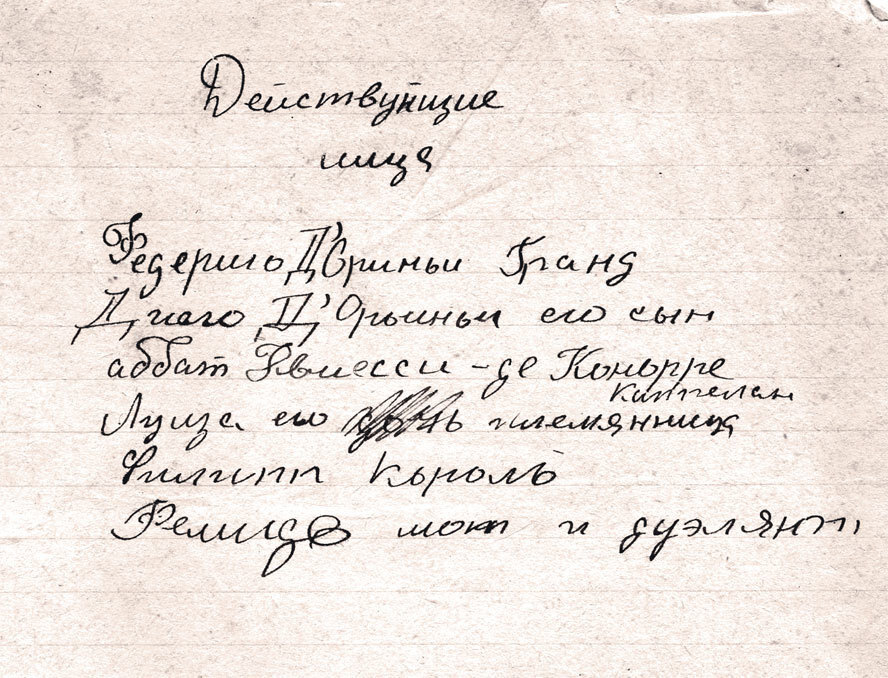 Действующие
лица
Федериго Д'Ориньи Гранд
Диего Д'Орьиньи его сын
аббат де Коньрре
каппелан
Луиза его племянница
Филипп Кьроль
мот и дуэлянт